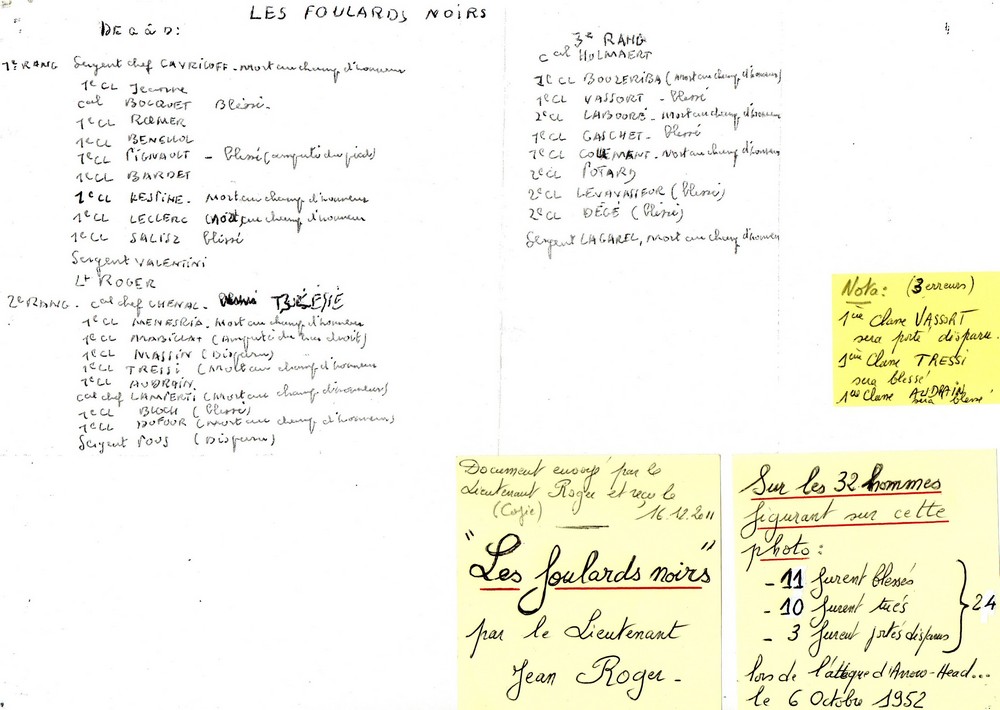 LES FOULARDS NOIRS
DE G à D:
1e RANG Sergent chef GAVRILOFF - Mort au champ d'honneur
1e CL Jeanne
cal BOCQUET Blessé -
1e CL RŒMER
1e CL BENELLOL
1e CL PIGNAULT - blessé (amputé du pied)
1e CL BARDET
1e CL KESPINE - Mort au champ d'honneur
1e CL LECLERC (Mort au champ d'honneur
1e CL SALISZ blessé
Sergent VALENTINI
Lt ROGER
2e RANG - cal chef CHENAL -
1e CL MENESRIA - Mort au champ d'honneur
1e CL MABILLAT (Amputé du bras droit)
1e CL MASSIN (Disparu)
1e CL TRESSI (Mort au champ d'honneur
1e CL AUDRAIN
cal chef LAMPERTI (Mort au champ d'honneur)
1e CL BLOCH (blessé)
1e CL DUFOUR (Mort au champ d'honneur)
Sergent POUS (Disparu)
3e RANG
cal HOLMAERT
1e CL BOUZERIBA (Mort au champ d'honneur)
1e CL VASSORT - blessé
2e CL LABOORÉ - Mort au champ d'honneur
1e CL GASCHET - blessé
1e CL COLLEMENT - Mort au champ d'honneur
2e CL POTARD
2e CL LEVAVASSEUR (blessé)
2e CL DÉGÉ (blessé)
Sergent LAGAREL, Mort au champ d'honneur
Nota: (3 erreurs)
1ère Classe VASSORT
sera porté disparu.
1ère Classe TRESSI
sera blessé
1ère Classe AUDRAIN
sera blessé
Document envoyé par le
Lieutenant Roger et reçu le
(Copie) 16.12.2011
"Les foulards noirs"
par le Lieutenant
Jean Roger -
Sur les 32 hommes
figurant sur cette
photo:
- 11 furent blessés
- 10 furent tués
- 3 furent portés disparus
24
lors de l'attaque d'Arrow-Head...
le 6 Octobre 1952